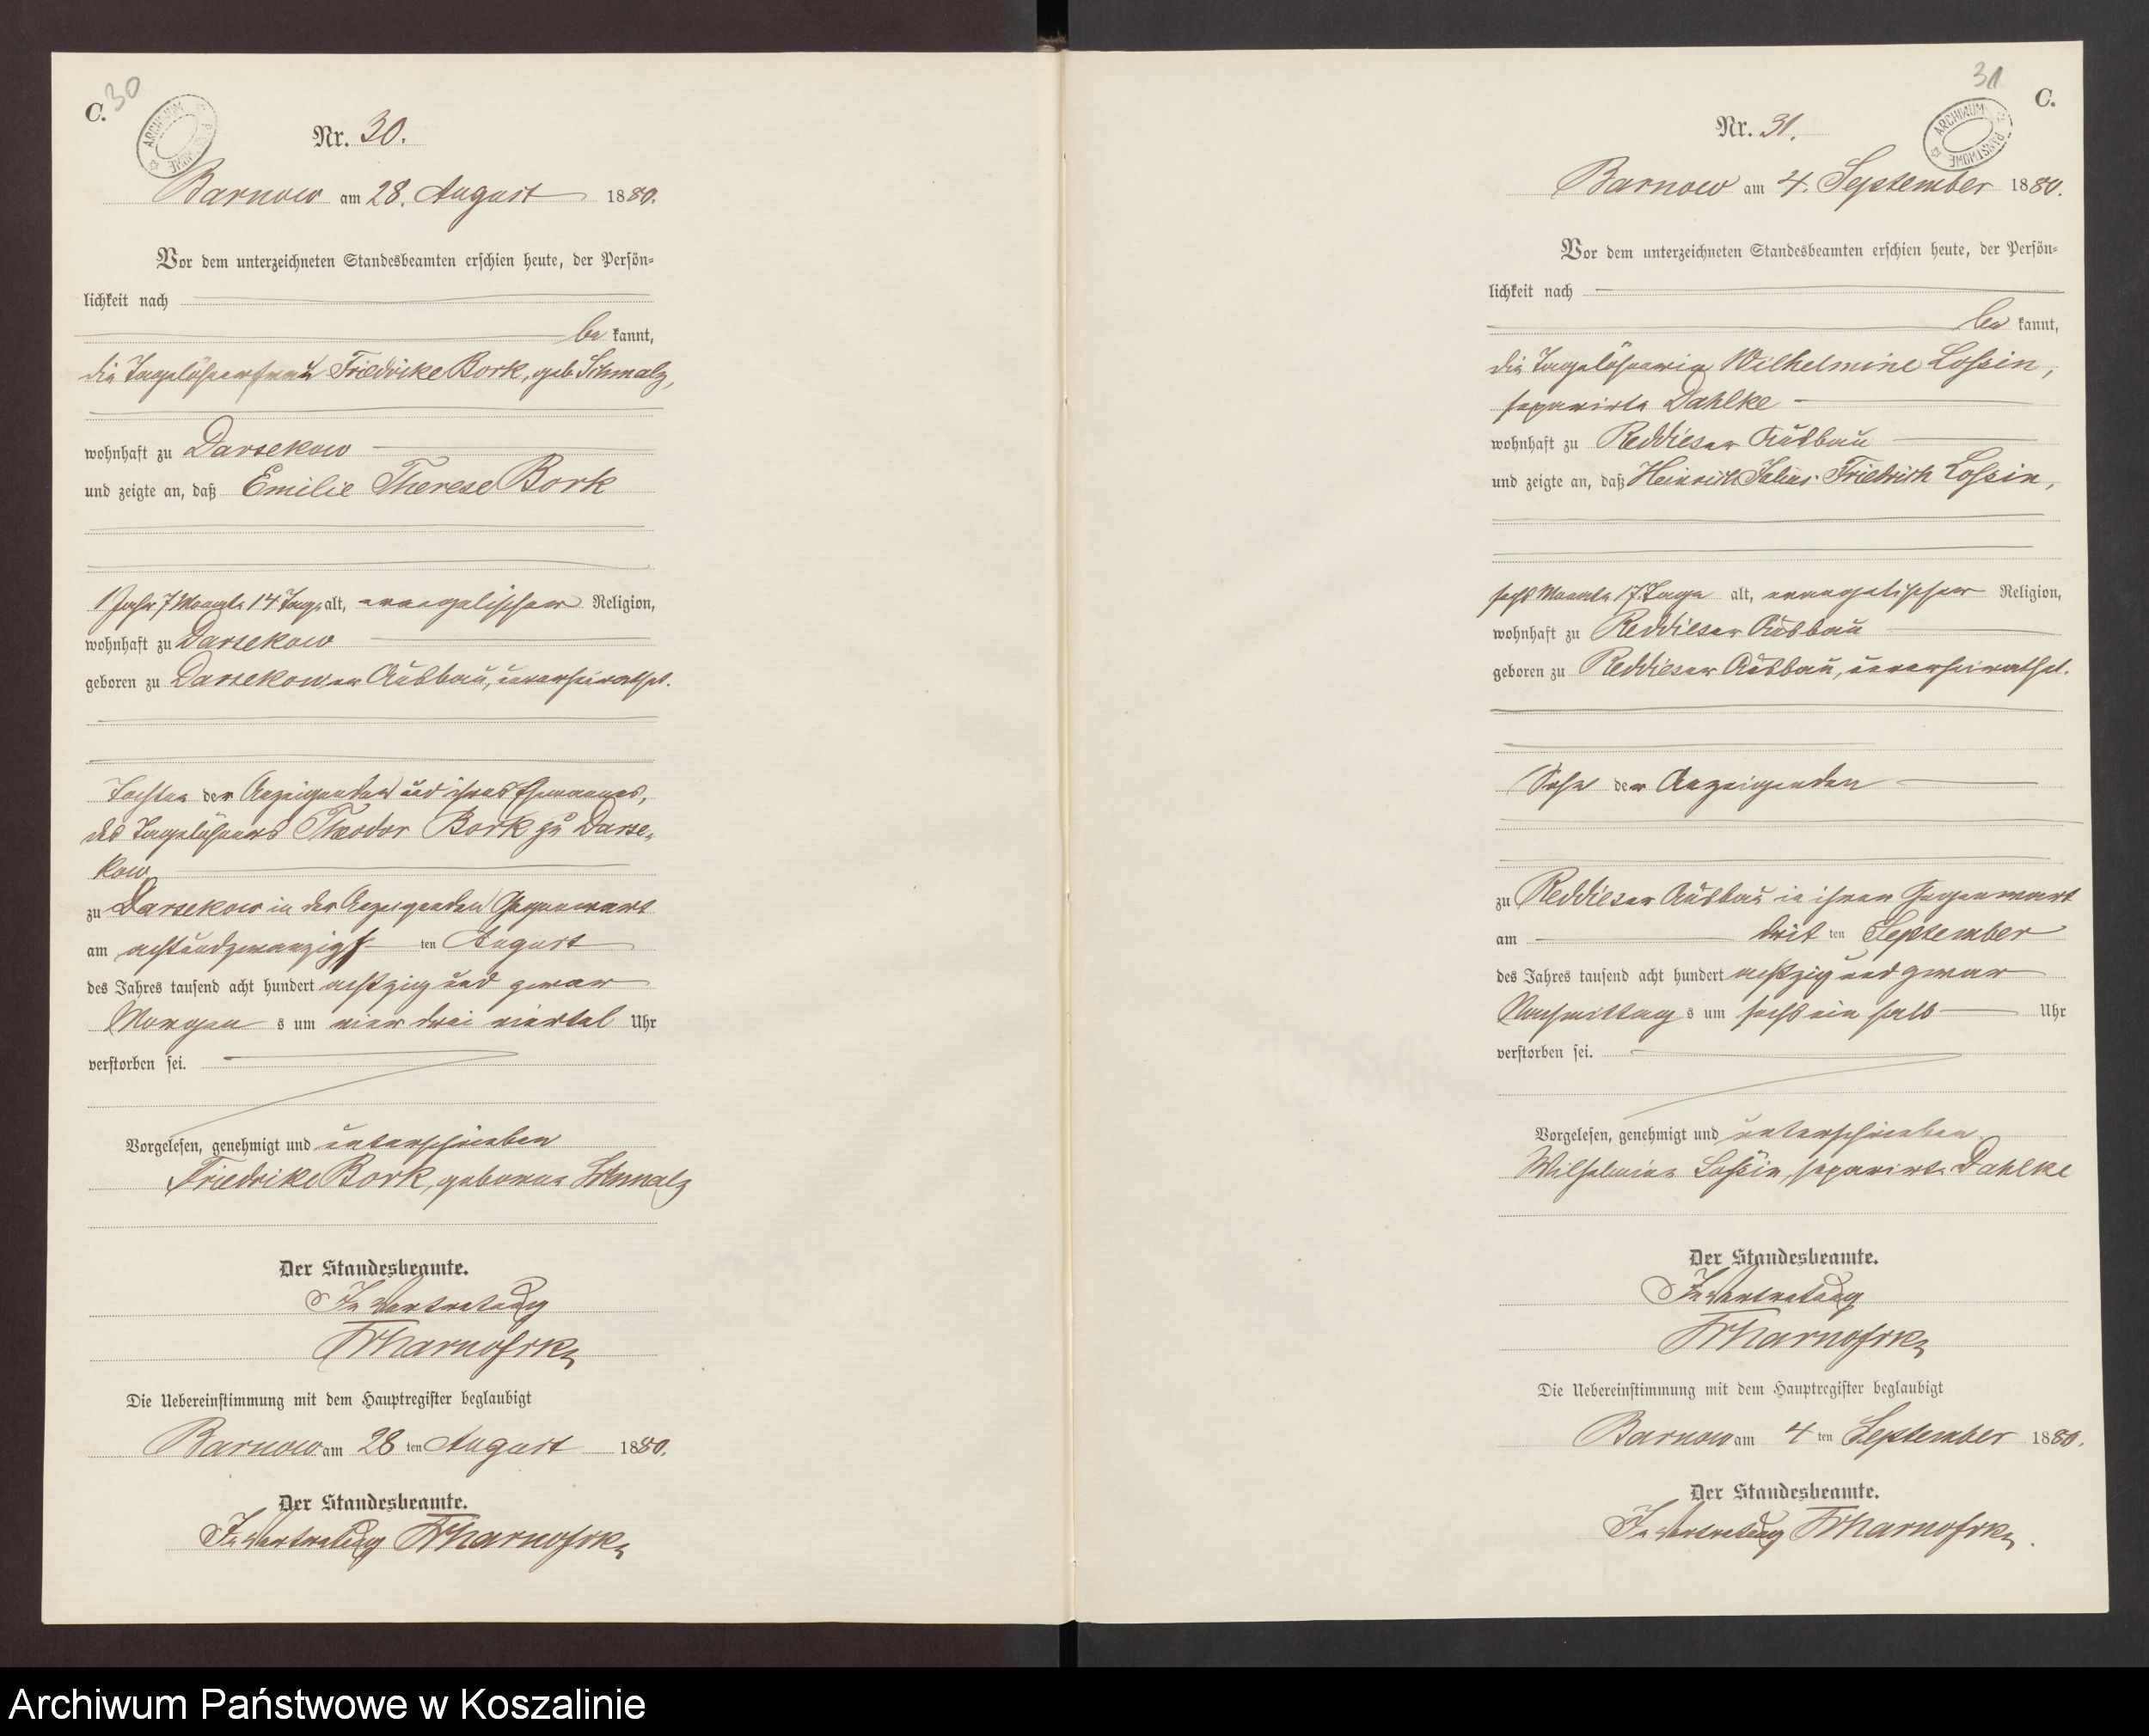 C. 30
ARCHIWUM PAŃSTWOWE
Nr. 30.
Barnow am 28. August 1880.
Vor dem unterzeichneten Standesbeamten erschien heute, der Persön-
lichkeit nach
be kannt,
die Tagelöhnerfrau Friedrike Bork, geb. Schmalz,
wohnhaft zu Darsekow
und zeigte an, daß Emilie Therese Bork
1 Jahr 7 Monate 14 Tage alt, evangelischer Religion,
wohnhaft zu Darsekow
geboren zu Darsekower Ausbau, unverheirathet.
Tochter der Anzeigenden und ihres Ehemannes,
des Tagelöhners Theodor Bork zu Darse-
kow
zu Darsekow in der Anzeigenden Gegenwart
am achtundzwanzigs ten August
des Jahres tausend acht hundert achtzig und zwar
Morgen s um vier drei viertel Uhr
verstorben sei.
Vorgelesen, genehmigt und unterschrieben
Friedrike Bork, geborene Schmalz
Der Standesbeamte.
In Vertretung
Die Uebereinstimmung mit dem Hauptregister beglaubigt
Barnow am 28 ten August 1880.
Der Standesbeamte.
In Vertretung
31 C.
ARCHIWUM PAŃSTWOWE
Nr. 31.
Barnow am 4. September 1880.
Vor dem unterzeichneten Standesbeamten erschien heute, der Persön-
lichkeit nach
be kannt,
die Tagelöhnerin Wilhelmine Lossin,
separirte Dahlke
wohnhaft zu Reddieser Ausbau
und zeigte an, daß Heinrich Julius Friedrich Lossin,
sechs Monate 17 Tage alt, evangelischer Religion,
wohnhaft zu Reddieser Ausbau
geboren zu Reddieser Ausbau, unverheirathet.
Sohn der Anzeigenden
zu Reddieser Ausbau in ihrer Gegenwart
am drit ten September
des Jahres tausend acht hundert achtzig und zwar
Nachmittag s um sechs ein halb Uhr
verstorben sei.
Vorgelesen, genehmigt und unterschrieben
Wilhelmine Lossin, separirte Dahlke
Der Standesbeamte.
In Vertretung
Die Uebereinstimmung mit dem Hauptregister beglaubigt
Barnow am 4 ten September 1880.
Der Standesbeamte.
In Vertretung
Archiwum Państwowe w Koszalinie